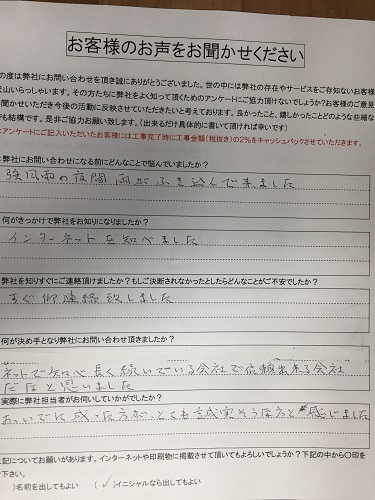 お客様のお声をお聞かせください
の度は弊社にお問い合わせを頂き誠にありがとうございました。世の中には弊社の存在やサービスをご存知ないお客様
沢山いらっしゃいます。その方たちに弊社をよく知って頂くためのアンケートにご協力頂けないでしょうか?お客様のご意見
聞かせいただき今後の活動に反映させていただきたいと考えております。良かったこと、嬉しかったことどのような些細な
でも結構です。是非ご協力お願い致します。(出来るだけ具体的に書いて頂ければ幸いです)
アンケートにご記入いただいたお客様には工事完了時に工事金額(税抜き)の2%をキャッシュバックさせていただきます。
弊社にお問い合わせになる前にどんなことで悩んでいましたか?
強風雨の夜間雨がふき込んで来ました
何がきっかけで弊社をお知りになりましたか?
インターネットを知べました
弊社を知りすぐにご連絡頂けましたか?もしご決断されなかったとしたらどんなことがご不安でしたか?
すぐ御連絡致しました
何が決め手となり弊社にお問い合わせ頂きましたか?
ネットで知べ長く続いている会社で信頼出来る会社
だなと思いました
実際に弊社担当者がお伺いしていかがでしたか?
おいでに成った方がとても誠実そうな方と感じました
上記についてお願いがあります。インターネットや印刷物に掲載させて頂いてもよろしいでしょうか?下記の中から〇印を
下さい。
)名前を出してもよい (✓)イニシャルなら出してもよい